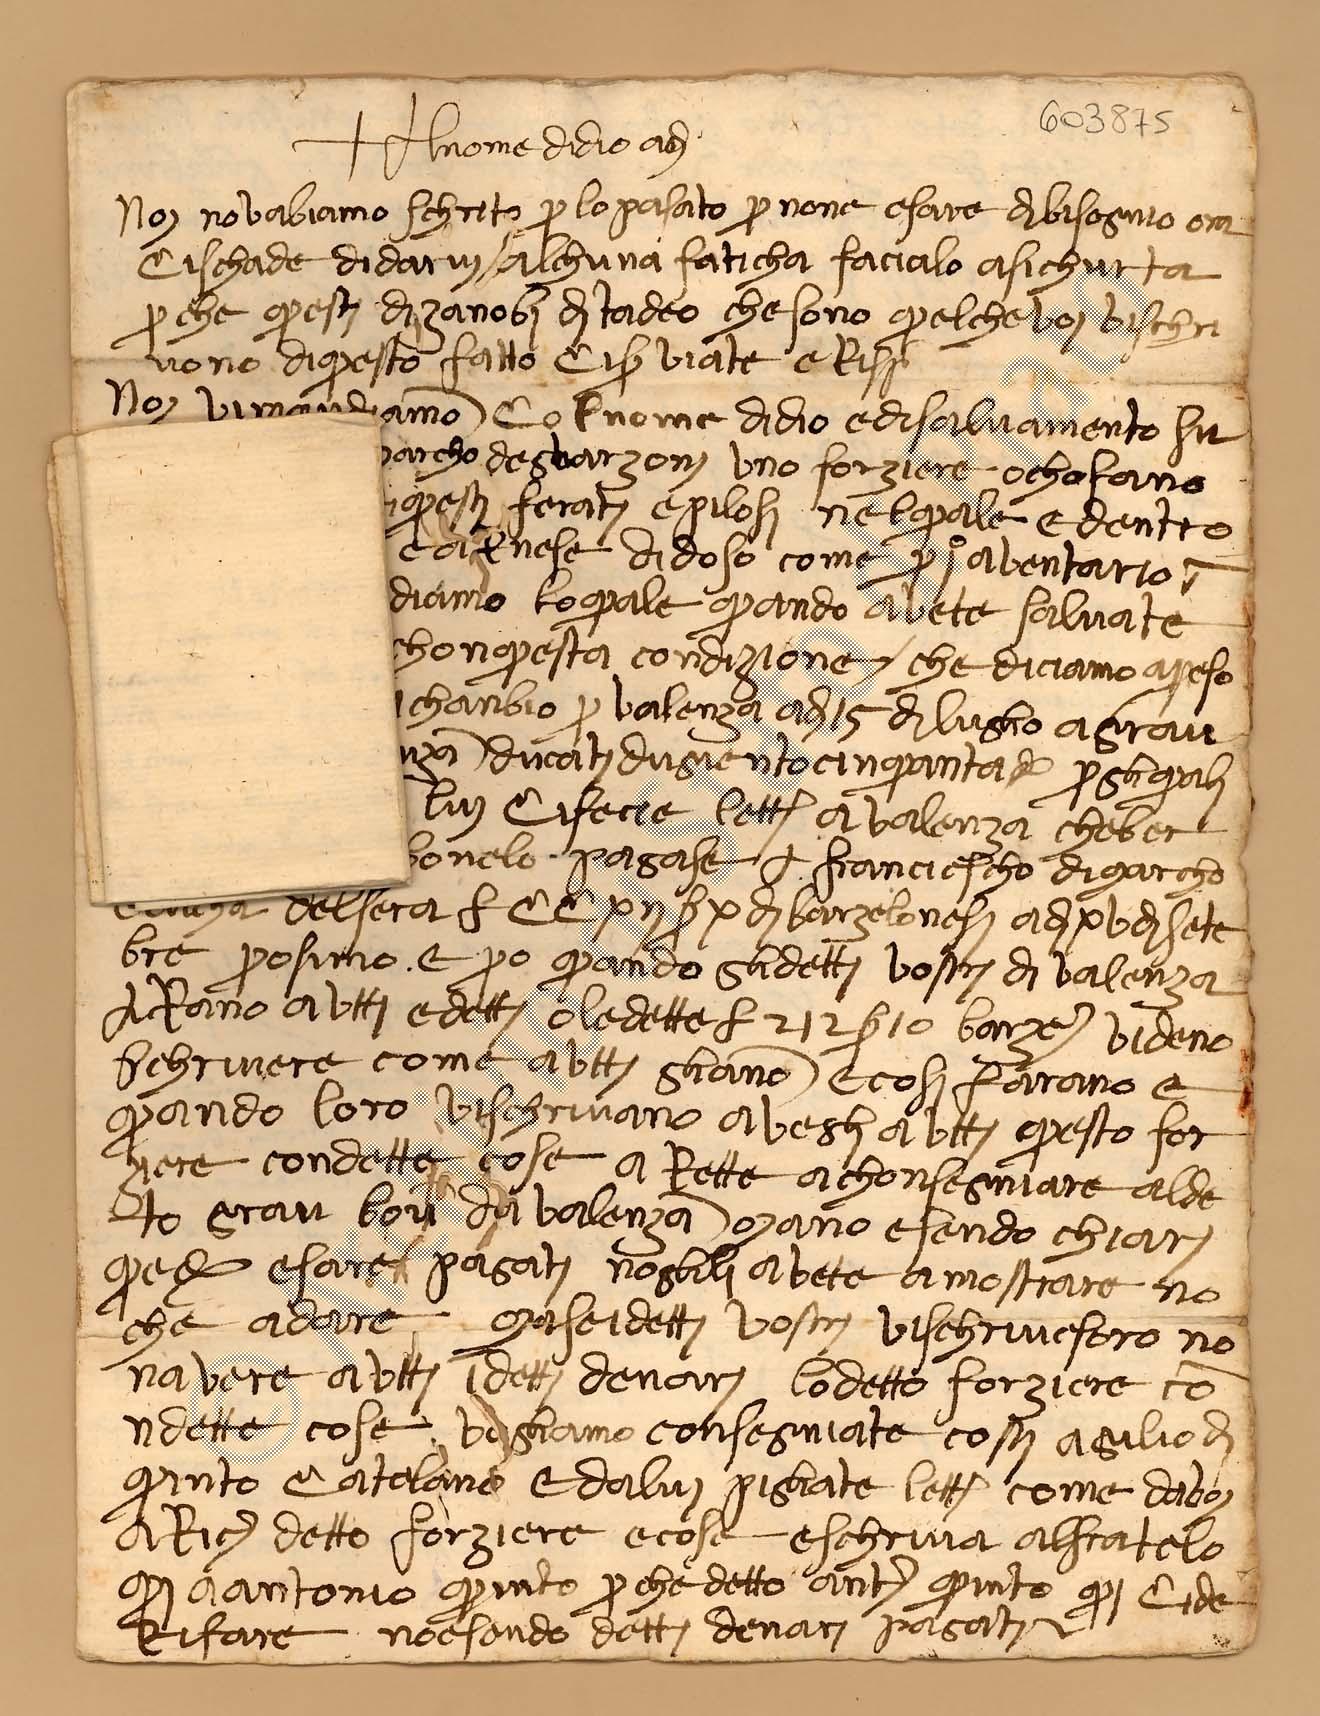 603875
Al nome di dio adj
Noj novabiamo schrito p lo pasato p none esare di bisognio ora
Cischade di darvj alchuna faticha facialo a sichurta
p che questj di zanobj dj tadeo che sono quelche voj vischri
vono di questo fatto
Noj vi mandiamo Col nome di dio e di salvamento su
barcho de gharzonj uno forziere o chofano
questj feratj e pilosj nel quale e dentro
e arnese di doso come p jo aventario
diamo lo quale quando avete salvate
chon questa condizione che diciamo apeso
chanbio p valenza adj 15 dj luglio a grau
nza ducatj dugientocinquanta p gli qualj
luj Cifecie lettr a valenza che ber
bonelo pagase franciescho di marcho
e lucha del sera f CCxij s x dj barzelonesj adj xv dj sete
bre prosimo e po quando gli dettj vostrj di valenza
arano avttj e dettj o le dette f 212 s 10 barze vi deno
schrivere come avttj gliano e cosj farano e
quando loro vischrivano aveglj avttj questo for
ziere con dette cose arette a chonsegniare al de
to grau di valenza mano esendo chiarj
esare pagatj no glilj avete a mostrare no
che a dare ma se i dettj vostrj vischrivesoro no
n avere avttj i dettj denarj lo detto forziere co
n dette cose vogliamo consegniate costj a gilio dj
quinto Catelano e da luj pigliate lettr come da voj
a Ric detto forziere e cose e schriva al fratelo
quj a antonio quinto p che detto ant quinto quj Cide
Rifare no esendo dettj denarj pagatj